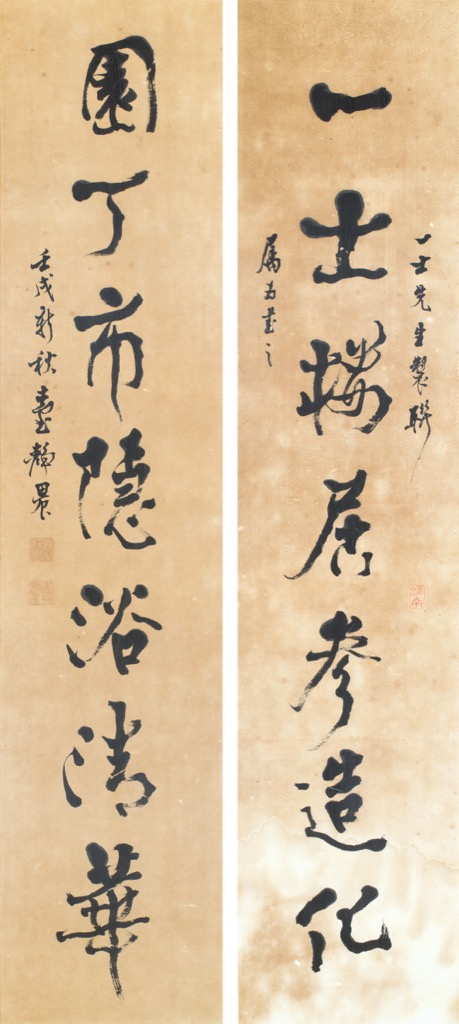 一士先生製聯
一士樓居參造化
屬為書之
園丁市隱浴清華
壬戌新秋臺靜農